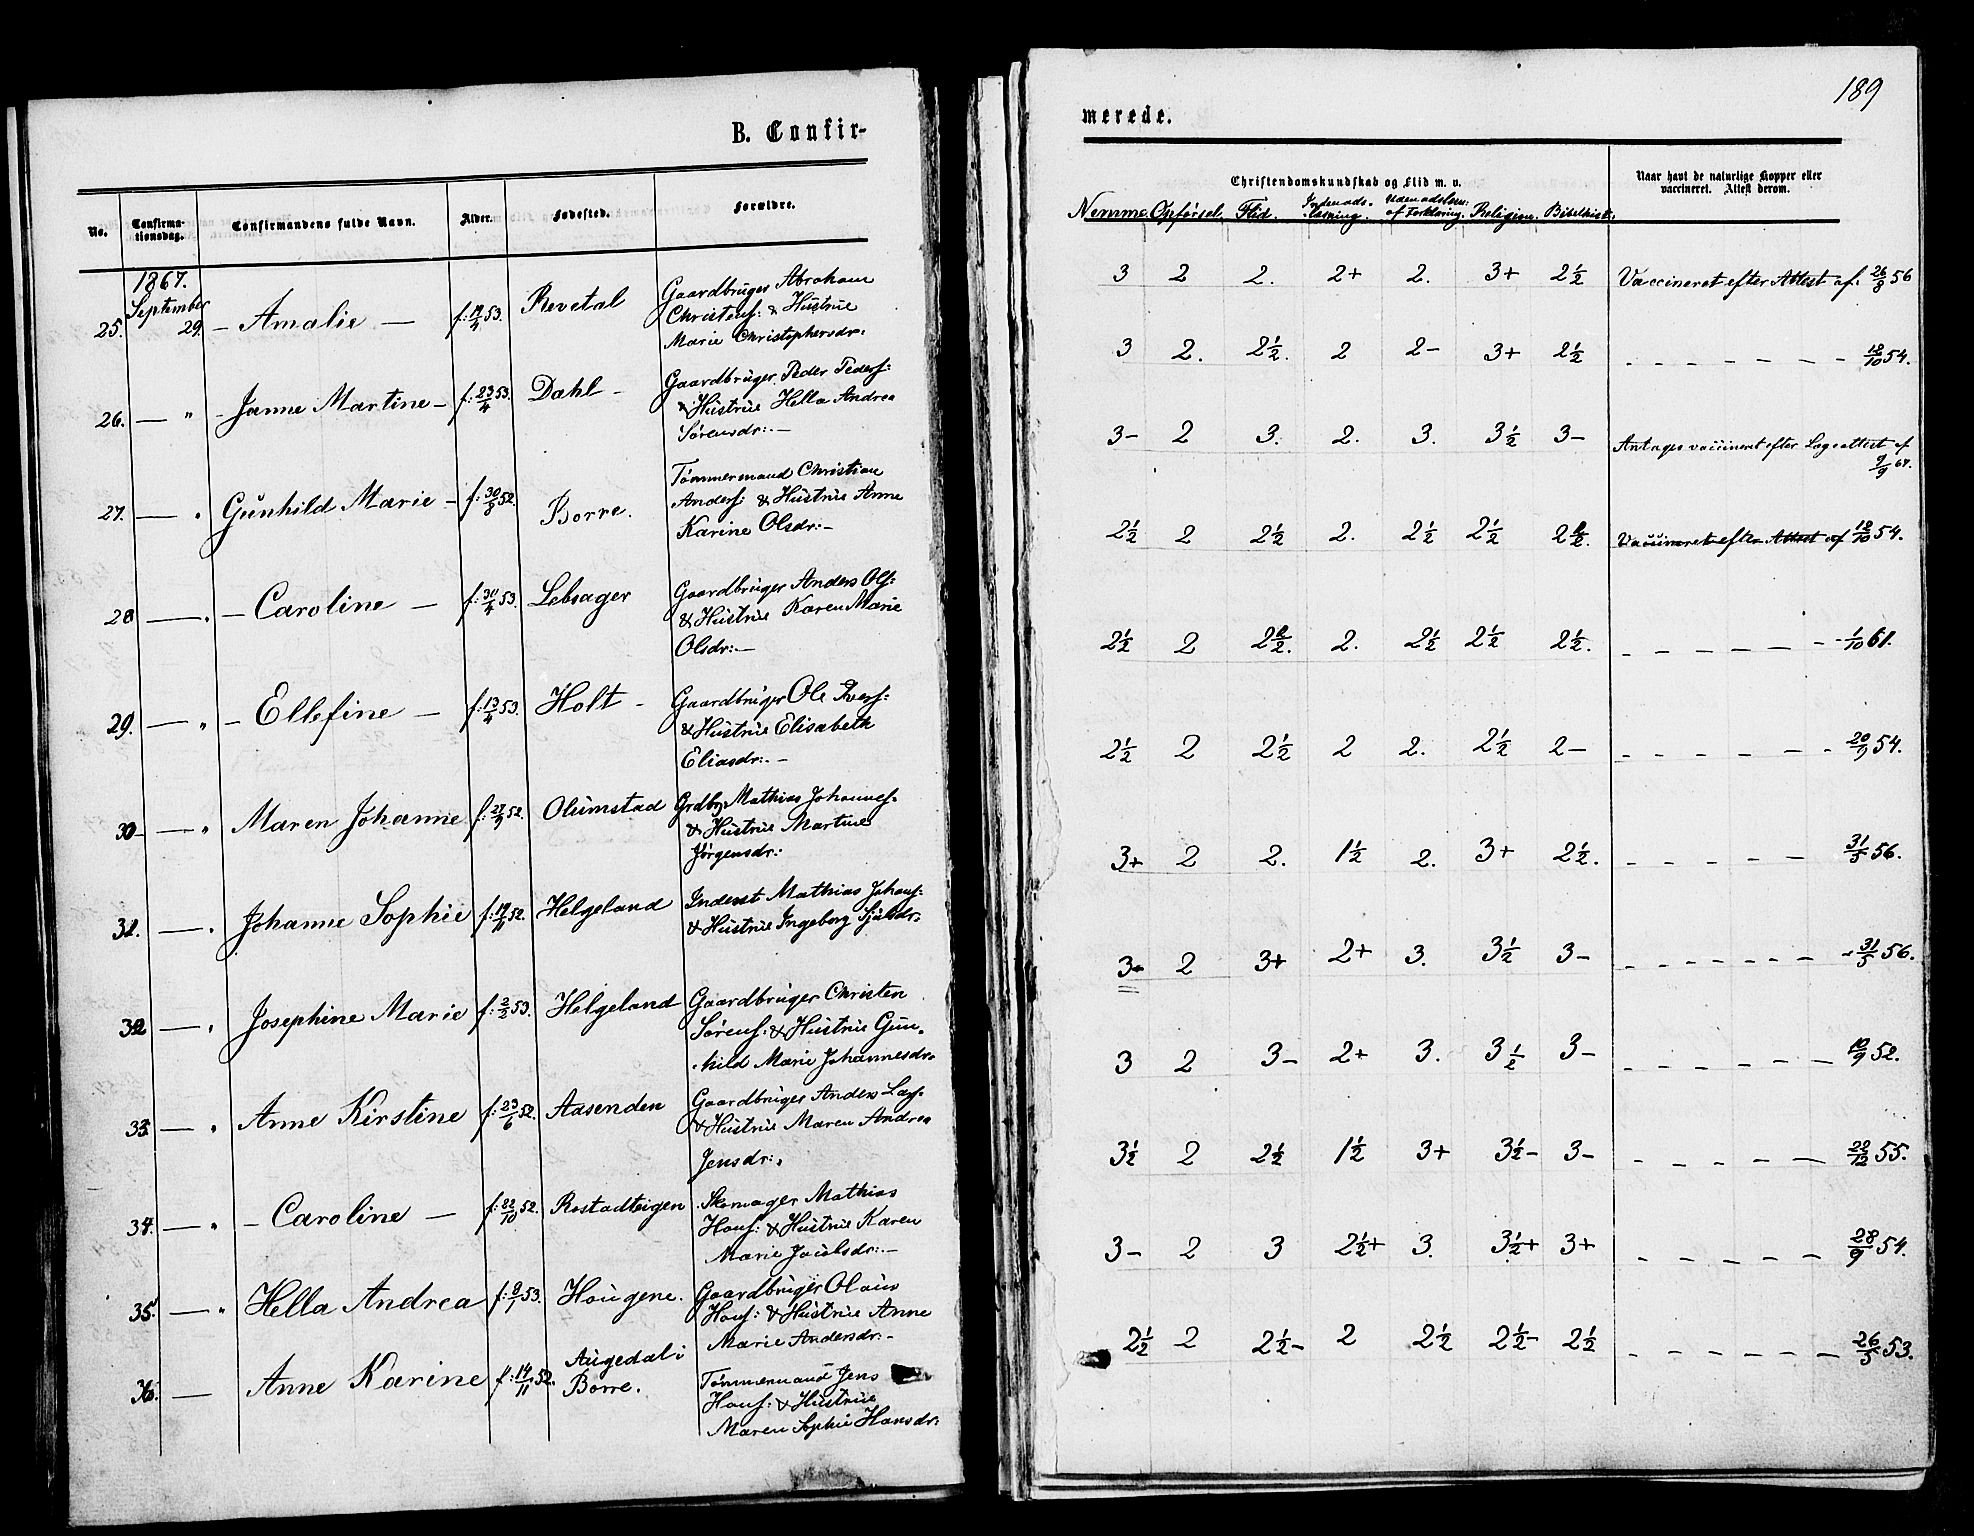 B. Confir-
No. Confirma-tionsdag. Confirmandens fulde Navn. Alder. Fødested. Forældre.
1867.
September
25. 29. – Amalie – f: 17/4 53. Revetal Gaardbruger Abraham
Christens: & Hustrue
Marie Christophersdr:
26. — " - Janne Martine – f: 23/4 53. Dahl – Gaardbruger Peder Peders:
& Hustrue Hella Andrea
Sørensdr: –
27. — " Gunhild Marie – f: 30/8 52. Borre. Tømmermand Christian
Anders: & Hustrue Anne
Karine Olsdr: –
28 — " – Caroline – f: 30/4 53. Lebsager Gaardbruger Anders Ols:
& Hustrue Karen Marie
Olsdr: –
29. — " – Ellefine – f: 13/4 53. Holt – Gaardbruger Ole Ivers:
& Hustrue Elisabeth
Eliasdr: –
30 — " Maren Johanne f: 27/9 52. Olumstad Grdbr. Mathias Johannes:
& Hustrue Martine
Jørgensdr:
31. — " Johanne Sophie f: 19/11 52. Helgeland Inderst Mathias Johans:
& Hustrue Ingeborg
32 — " Josephine Marie f: 2/2 53. Helgeland Gaardbruger Christen
Sørens: & Hustrue Gun-
hild Marie Johannesdr.
33. — " Anne Kirstine f: 23/6 52. Aasenden Gaardbruger Anders Lars:
& Hustrue Maren Andrea
Jensdr:
34. — " – Caroline – f: 22/10 52. Rostadteigen Skomager Mathias
Hans: & Hustrue Karen
Marie Jacobsdr: –
35. — " Hella Andrea f: 8/1 53. Hougene. Gaardbruger Olaus
Hans: & Hustrue Anne
Marie Andersdr: –
36. — Anne Karine f: 14/11 52. Augedal i
Borre. Tømmermand Jens
Hans: & Hustrue
Maren Sophie Hansdr:
189
merede.
Christendomskundskab og Flid m. v. Naar havt de naturlige Kopper eller
vaccineret. Attest derom.
Nemme. Opførsel. Flid. Indenads-læsning. Udenadslæsn: af Forklaring. Religion. Bibelhist:
3 2 2. 2+ 2. 3+ 2½ Vaccineret efter Attest af: 26/8 56
3 2. 2½. 2 2– 3+ 2½ – – – – – – – 18/10 54.
3– 2 3. 2. 3. 3½ 3– Antages vaccineret efter Lægeattest af
9/9 67.
2½ 2 2½ 2. 2½ 2½ 2½. Vaccineret efter Attest af 18/10 54.
2½ 2 2½. 2. 2½ 2½ 2½. – – – – – – 1/10 61.
2½ 2 2½ 2 2. 2½ 2– – – – – – – 20/9 54.
3+ 2 2. 1½ 2. 3+ 2½. – – – – – 31/5 56.
3+ 2 3+ 2+ 3. 3½ 3– – – – – – – 31/5 56.
3 2 3– 2+ 3. 3½ 3– – – – – – 10/9 52.
3½ 2 2½ 1½ 3+ 3½– 3– – – – – – 22/12 55.
3– 2 3 2½+ 3. 3½+ 3+ – – – – – 28/9 54.
2½ 2 2½– 2 2½ 2½– 2½ – – – – – – 26/5 53.